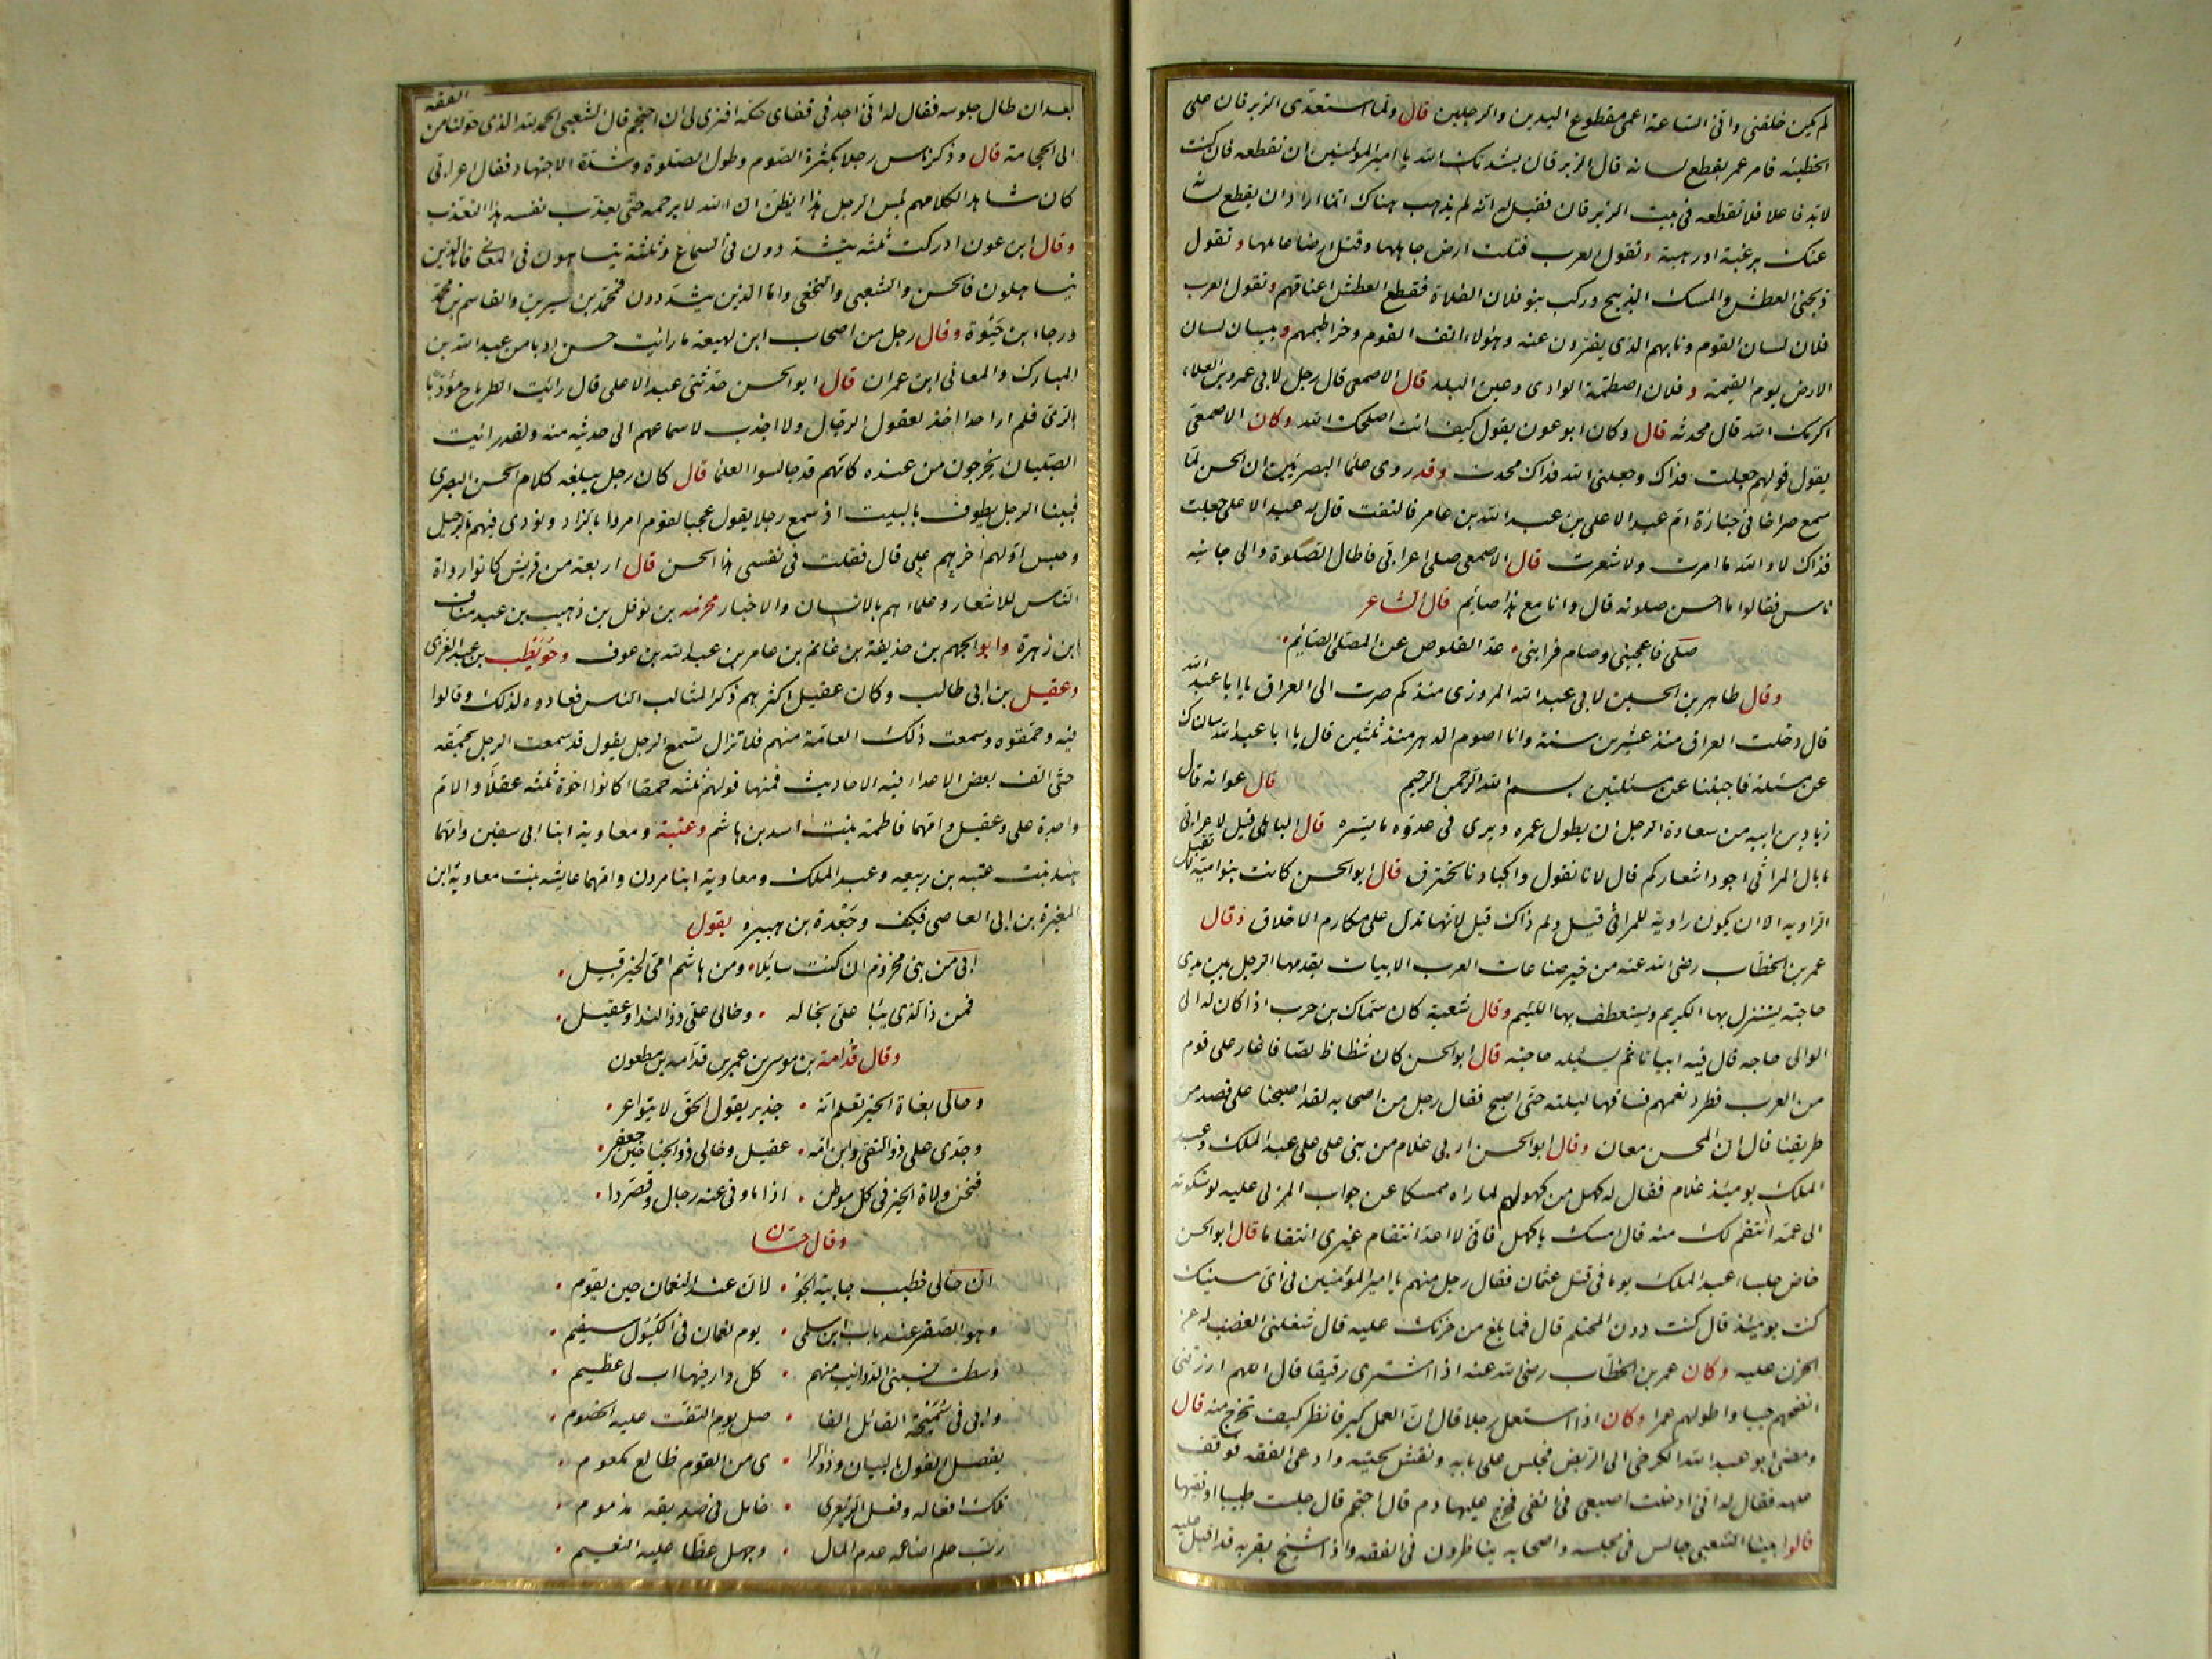 لم يكن خلفني واني الساعة اعمى مقطوع اليدين والرجلين قال ولما استعدى الزبرقان على
الحطيئه فامر عمر بقطع لسانه قال الزبرقان نشدتك الله يا امير المؤمنين ان تقطعه فان كنت
لابد فاعلا فلا تقطعه في بيت الزبرقان فقيل له انه لم يذهب هناك انما اراد ان يقطع لسانه
عنك برغبة او رهبة وتقول العرب قتلت ارض جاهلها وقتل ارضا عالمها وتقول
ذبحني العطش والمسك الذبيح وركب بنو فلان الفلاة فقطع العطش اعناقهم وتقول العرب
فلان لسان القوم ونابهم الذي يفترون عنه وهؤلاء انف القوم وخراطيمهم وبيسان لسان
الارض يوم القيمة وفلان اصطمة الوادي وعين البلد قال الاصمعي قال رجل لابي عمرو بن العلاء
اكرمك الله قال محدثة قال وكان ابو عون يقول كيف انت اصلحك الله وكان الاصمعي
يقول قولهم جعلت فداك وجعلني الله فداك محدث وقد روى علماء البصريين ان الحسن لما
سمع صراخا في جنازة ام عبد الاعلى بن عبد الله بن عامر فالتفت قال له عبد الاعلى جعلت
فداك لا والله ما امرت ولا شعرت قال الاصمعي صلى اعرابي فاطال الصلوة والى جانبه
ناس فقالوا ما احسن صلوته قال وانا مع هذا صايم قال الشاعر
صلى فاعجبني وصام فرابني عد القلوص عن المصلى الصايم
وقال طاهر بن الحسين لابي عبد الله المروزي منذ كم صرت الى العراق يا ابا عبد الله
قال دخلت العراق منذ عشرين سنة وانا اصوم الدهر منذ ثلثين قال يا ابا عبد الله سالناك
عن مسئلة فاجبتنا عن مسئلتين بسم الله الرحمن الرحيم قال عوانه قال
زياد بن ابيه من سعادة الرجل ان يطول عمره ويرى في عدوه ما يسره قال الباهلي قيل لاعرابي
ما بال المراثي اجود اشعاركم قال لانا نقول واكبادنا تحترق قال ابو الحسن كانت بنو امية لا تقبل
الراويه الا ان يكون راوية للمراثي قيل ولم ذاك قيل لانها تدل على مكارم الاخلاق وقال
عمر بن الخطاب رضي الله عنه من خير صناعات العرب الابيات يقدمها الرجل بين يدي
حاجته يستنزل بها الكريم ويستعطف بها اللئيم وقال شعبة كان سماك بن حرب اذا كان له الى
الوالي حاجه قال فيه ابياتا ثم يسئله حاجته قال ابو الحسن كان شظاظ لصا فاغار على قوم
من العرب فطرد نعمهم فساقها ليلته حتى اصبح فقال رجل من اصحابه لقد اصبحنا على قصد من
طريقنا قال ان المحسن معان وقال ابو الحسن اربى غلام من بني علي على عبد الملك وعبد
الملك يومئذ غلام فقال له كهل من كهولهم لما راه ممسكا عن جواب المربي عليه لو شكوته
الى عمه انتقم لك منه قال امسك يا كهل فاني لا اعد انتقام غيري انتقاما قال ابو الحسن
خاض جلساء عبد الملك يوما في قتل عثمان فقال رجل منهم يا امير المؤمنين في اي سنيك
كنت يومئذ قال كنت دون المحتلم قال فما بلغ من حزنك عليه قال شغلني الغضب له عن
الحزن عليه وكان عمر بن الخطاب رضي الله عنه اذا اشترى رقيقا قال اللهم ارزقني
انصحهم جيبا واطولهم عمرا وكان اذا استعمل رجلا قال ان العمل كير فانظر كيف تخرج منه قال
ومضى ابو عبد الله الكرخي الى الربض فجلس على بابه ونفش لحيته وادعى الفقه فوقف
عليه فقال له اني ادخلت اصبعي في انفي فخرج عليها دم قال احتجم قال جلست طبيبا او فقيها
قالوا بينا الشعبي جالس في مجلسه واصحابه يناظرون في الفقه واذا شيخ بقربه قد اقبل عليه
بعد ان طال جلوسه فقال له اني اجد في قفاي حكة افترى لي ان احتجم قال الشعبي الحمد لله الذي حولنا من الفقه
الى الحجامة قال وذكر ناس رجلا بكثرة الصوم وطول الصلوة وشدة الاجتهاد فقال اعرابي
كان شاهدا لكلامهم لبئس الرجل هذا ايظن ان الله لا يرحمه حتى يعذب نفسه هذا التعذيب
وقال ابن عون ادركت ثلثة يتشددون في السماع وثلثة يتساهلون في المعاني فاما الذين
يتساهلون فالحسن والشعبي والنخعي واما الذين يتشددون فمحمد بن سيرين والقاسم بن محمد
ورجاء بن حيوة وقال رجل من اصحاب ابن لهيعة ما رايت احسن ادبا من عبد الله بن
المبارك والمعافى ابن عمران قال ابو الحسن حدثني عبد الاعلى قال رايت الطرماح مؤدبا
بالري فلم ار احدا اخذ لعقول الرجال ولا اجذب لاسماعهم الى حديثه منه ولقد رايت
الصبيان يخرجون من عنده كانهم قد جالسوا العلماء قال كان رجل يبلغه كلام الحسن البصري
فبينا الرجل يطوف بالبيت اذ سمع رجلا يقول عجبا لقوم امروا بالزاد ونودي فيهم بالرحيل
وحبس اولهم على اخرهم قال فقلت في نفسي هذا الحسن قال اربعة من قريش كانوا رواة
الناس للاشعار وعلماءهم بالانساب والاخبار مخرمه بن نوفل بن وهيب بن عبد مناف
ابن زهرة وابو الجهم بن حذيفة بن غانم بن عامر بن عبد الله بن عوف وحويطب بن عبد العزى
وعقيل بن ابي طالب وكان عقيل اكثرهم ذكرا لمثالب الناس فعادوه لذلك وقالوا
فيه وحمقوه وسمعت ذلك العامة منهم فلا تزال تسمع الرجل يقول قد سمعت الرجل يحمقه
حتى الف بعض الاعداء فيه الاحاديث فمنها قولهم ثلثة حمقاء كانوا اخوة ثلثه عقلاء والام
واحدة علي وعقيل وامهما فاطمة بنت اسد بن هاشم وعتبة ومعاوية ابنا ابي سفين وامهما
هند بنت عتبه بن ربيعه وعبد الملك ومعاوية ابنا مروان وامهما عايشه بنت معاوية ابن
المغيرة بن ابي العاصي فكيف وجعدة بن هبيره يقول
ابي من بني مخزوم ان كنت سايلا ومن هاشم امي لخير قبيل
فمن ذا الذي ينبا علي بخاله وخالي علي ذو الندا وعقيل
وقال قدامة بن موسى بن عمر بن قدامه بن مظعون
وخالي بغاة الخير تعلم انه جدير يقول الحق لا يتواعر
وجدي علي ذو التقى وابن امه عقيل وخالي ذو الجناحين جعفر
فنحن ولاة الخير في كل موطن اذا ما ونى عنه رجال وقصروا
وقال حسان
ان خالي خطيب جابية الجو لان عند النعمان حين يقوم
وهو الصقر عند باب ابن سلمى يوم نعمان في الكبول سقيم
وسطت نسبتي الذوائب منهم كل دار فيها اب لي عظيم
وابي في سميحة القائل الفا صل يوم التقت عليه الخصوم
يفصل القول بالبيان وذو الرا ى من القوم ظالع مكعوم
تلك افعاله وفعل الزبعرى خامل في صديقه مذموم
رب حلم اضاعه عدم المال وجهل غطا عليه النعيم